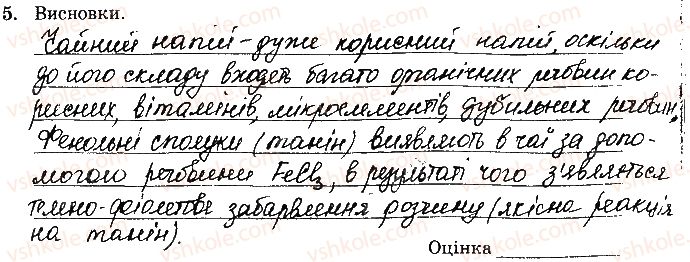 5. Висновки.
Чайний напій - дуже корисний напій, оскільки
до його складу входять багато органічних речовин ко-
рисних, вітамінів, мікроелементів, дубильних речовин.
Фенольні сполуки (танін) виявляють в чаї за допо-
могою речовини FeCl3, в результаті чого з'являється
темно-фіолетове забарвлення розчину (якісна реакція
на танін).
Оцінка